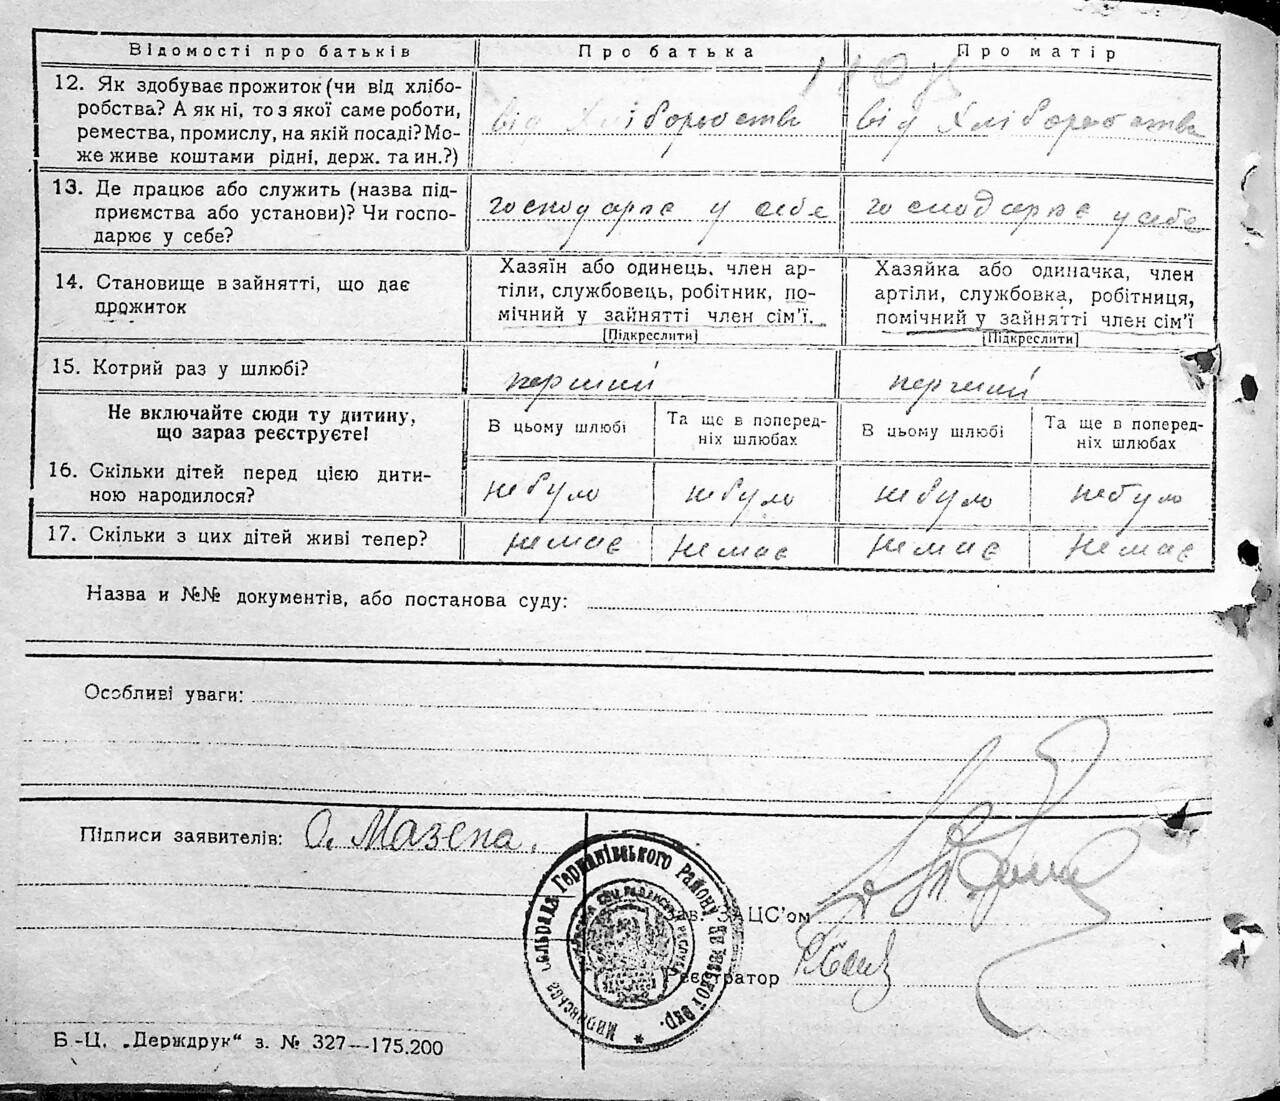 Відомості про батьків
Про батька
Про матір
12. Як здобуває прожиток (чи від хлібо-
робства? А як ні, то з якої саме роботи,
ремества, промислу, на якій посаді? Мо-
же живе коштами рідні, держ. та ин.?)
від Хліборобства
від Хліборобства
13. Де працює або служить (назва під-
приємства або установи)? Чи госпо-
дарює у себе?
господарює у себе
господарює у себе
14. Становище в зайнятті, що дає
прожиток
Хазяїн або одинець, член ар-
тіли, службовець, робітник, по-
мічний у зайнятті член сім'ї.
[Підкреслити]
Хазяйка або одиначка, член
артіли, службовка, робітниця,
помічний у зайнятті член сім'ї
[Підкреслити]
15. Котрий раз у шлюбі?
перший
перший
Не включайте сюди ту дитину,
що зараз реєструєте!
В цьому шлюбі
Та ще в поперед-
ніх шлюбах
В цьому шлюбі
Та ще в поперед-
ніх шлюбах
16. Скільки дітей перед цією дити-
ною народилося?
небуло
небуло
небуло
небуло
17. Скільки з цих дітей живі тепер?
немає
немає
немає
немає
Назва и №№ документів, або постанова суду:
Особливі уваги:
Підписи заявителів: О. Мазепа.
сільрада Германівського Району Київської Окр.
Зав. ЗАЦС'ом
Реєстратор
Б-Ц. „Держдрук“ з. № 327—175.200